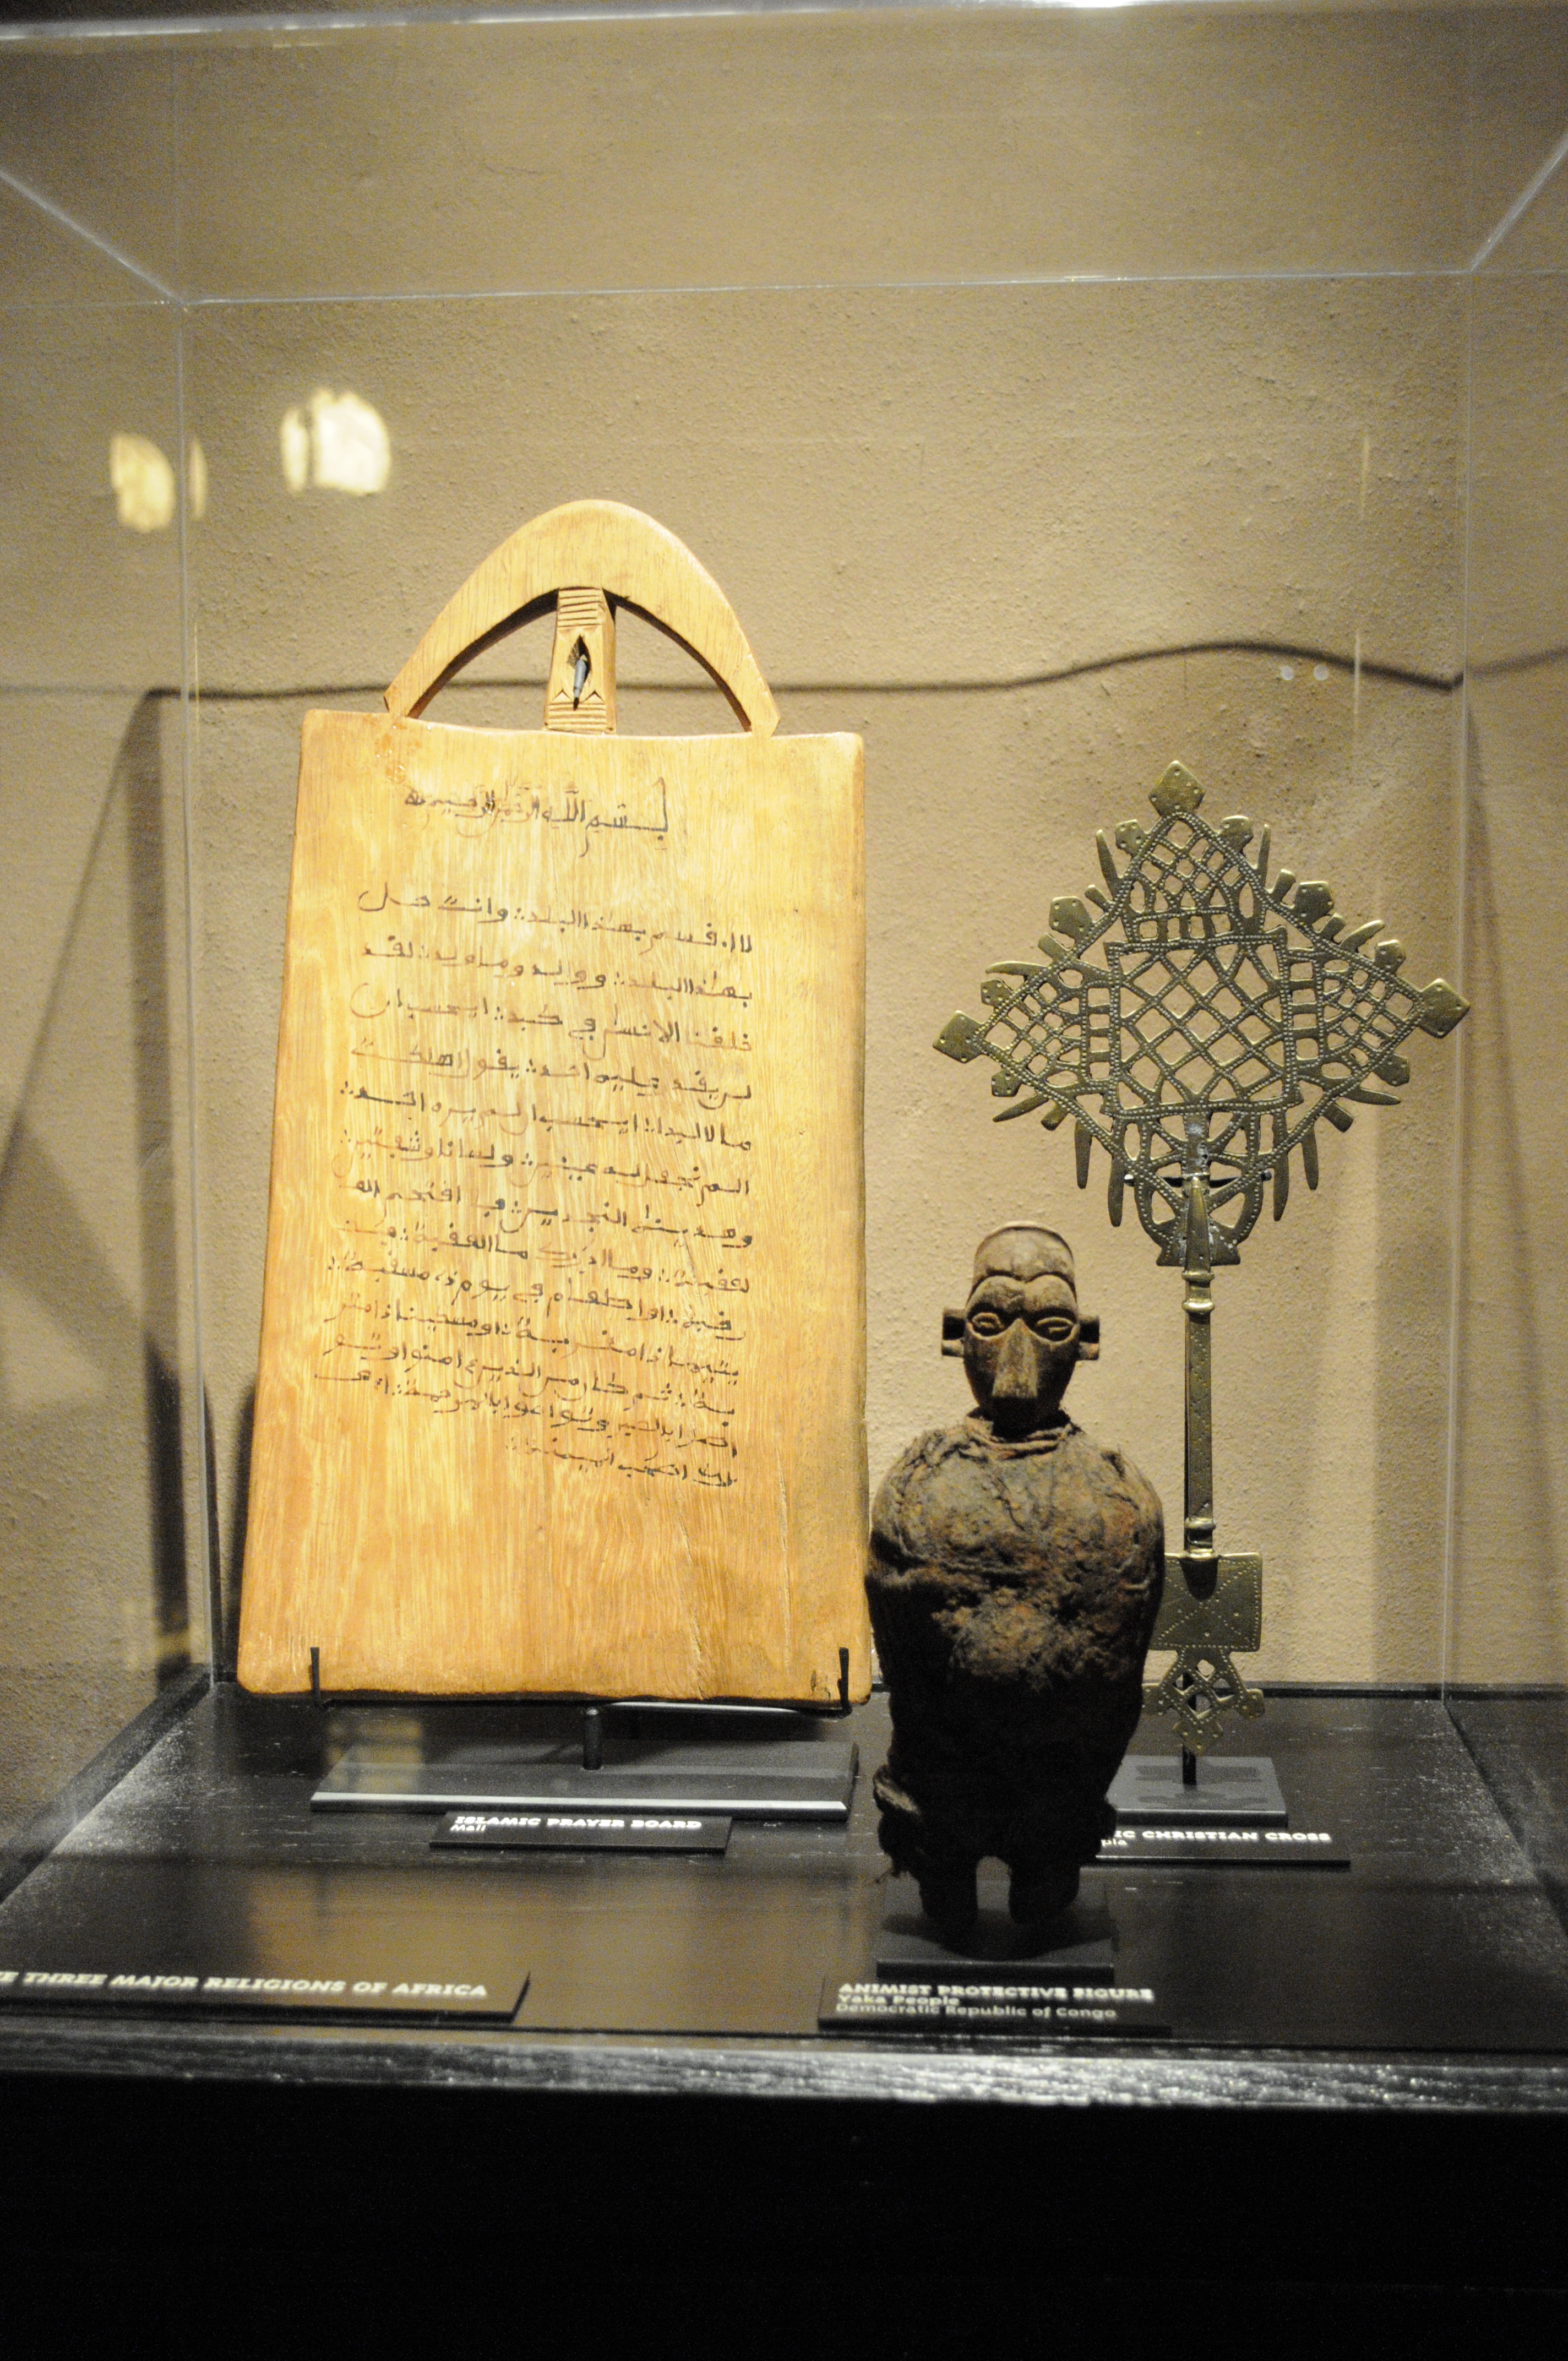 بسم الله الرحمن الرحيم
لا اقسم بهذا البلد؞ وانت حل
بهذا البلد؞ ووالد وما ولد؞ لقد
خلقنا الانسن في كبد؞ ايحسب ان
لن يقدر عليه احد؞ يقول اهلكت
مالا لبدا؞ ايحسب ان لم يره احد؞
الم نجعل له عينين؞ ولسانا وشفتين؞
وهدينه النجدين؞ فلا اقتحم الع
لعقبة؞ وما ادريك ما العقبة؞ فك
رقبة؞ او اطعام في يوم ذي مسغبة؞
يتيما ذا مقربة؞ او مسكينا ذا متر
بة؞ ثم كان من الذين ءامنوا وتو
بالصبر وتواصوا بالمرحمة؞
اصحب الميمنة؞
ISLAMIC PRAYER BOARD
Mali
IC CHRISTIAN CROSS
pia
E THREE MAJOR RELIGIONS OF AFRICA
ANIMIST PROTECTIVE FIGURE
Yaka People
Democratic Republic of Congo